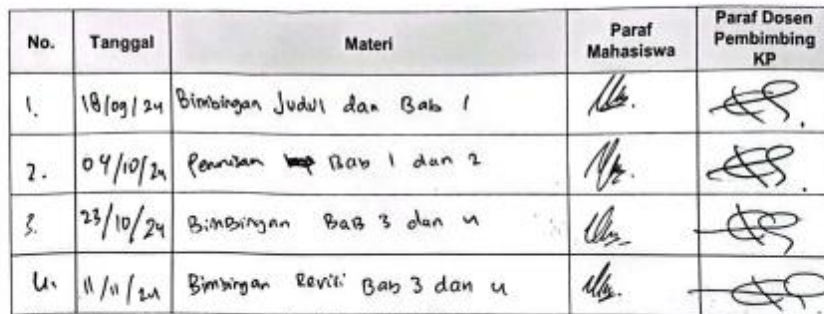 No. Tanggal Materi Paraf Mahasiswa Paraf Dosen Pembimbing KP
1. 18/09/24 Bimbingan Judul dan Bab 1
2. 04/10/24 Bab 1 dan 2
3. 23/10/24 Bimbingan Bab 3 dan 4
4. 11/11/24 Bimbingan Revisi Bab 3 dan 4